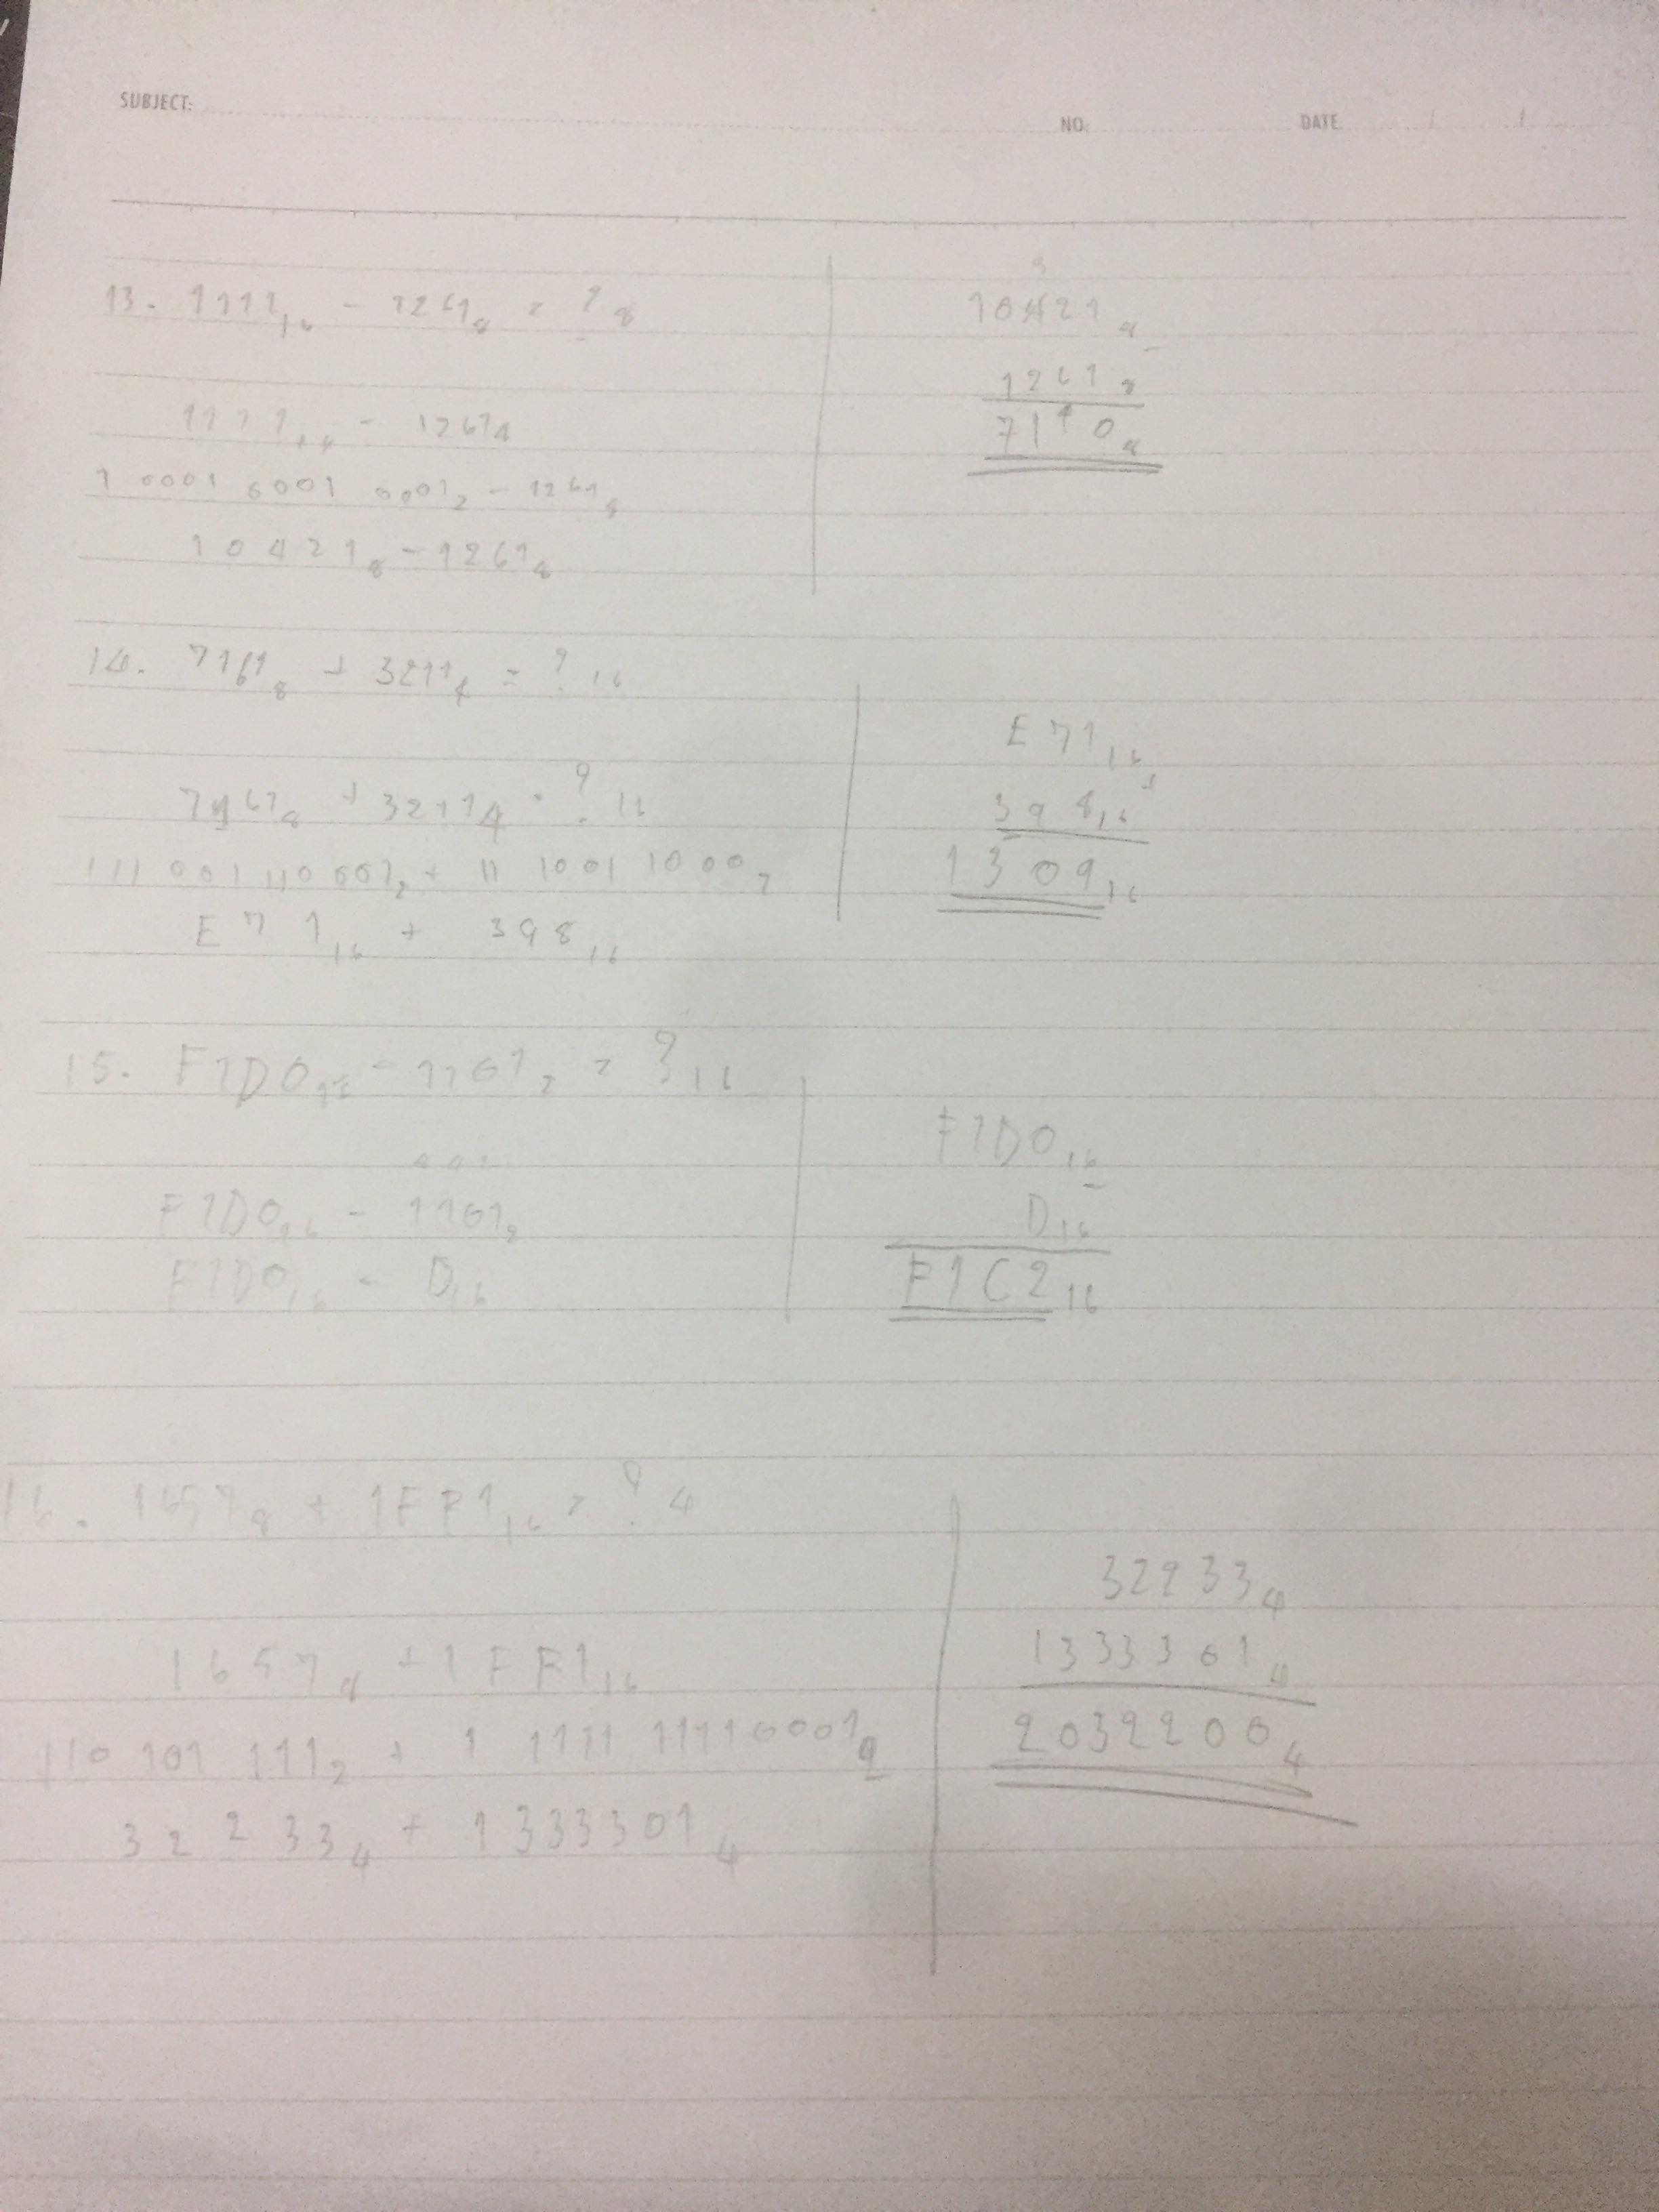 SUBJECT:
NO.
DATE / /
13. 1111₁₆ - 1261₈ = ?₈
1111₁₆ - 1261₈
1 0001 0001 0001₂ - 1261₈
10421₈ - 1261₈
10421₈ -
1261₈
7140₈
14. 7161₈ + 3211₄ = ?₁₆
7161₈ + 3211₄ = ?₁₆
111 001 110 001₂ + 11 1001 1000₂
E71₁₆ + 398₁₆
E71₁₆ +
398₁₆
1309₁₆
15. F1D0₁₆ - 1101₂ = ?₁₆
F1D0₁₆ - 1101₂
F1D0₁₆ - D₁₆
F1D0₁₆ -
D₁₆
F1C2₁₆
16. 1657₈ + 1FF1₁₆ = ?₄
1657₈ + 1FF1₁₆
110 101 111₂ + 1 1111 11110001₂
32 2 33₄ + 1333301₄
32233₄
1333301₄
2032200₄